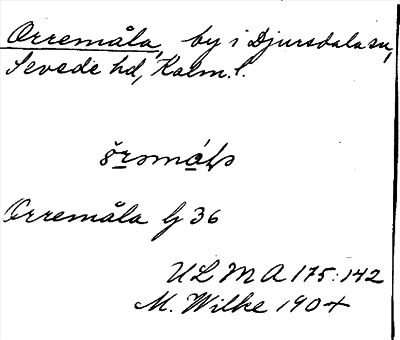 Orremåla, by i Djursdala sn,
Sevede hd, Kalm. l.
Orremåla Lj 36
ULMA 175:142
M. Wilke 1904